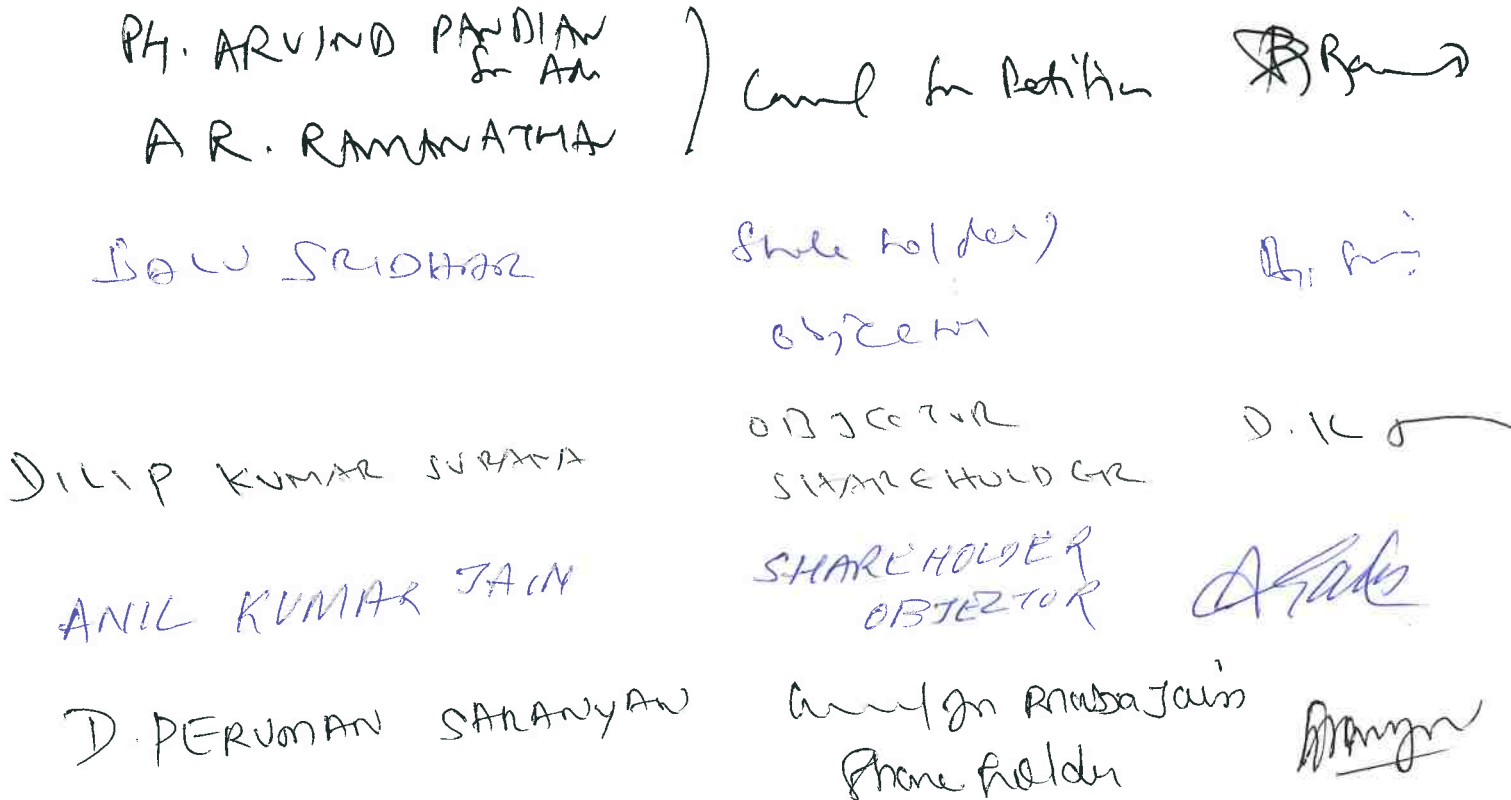 PH. ARVIND PANDIAN
for Adv
A R. RAMANATHAN
Counsel for Petitioner
BALU SRIDHAR
Share holder
objector
DILIP KUMAR SURANA
OBJECTOR
SHAREHOLDER
D.K
ANIL KUMAR JAIN
SHAREHOLDER
OBJECTOR
D. PERUMAN SARANYAN
Counsel for Jain
Share holder